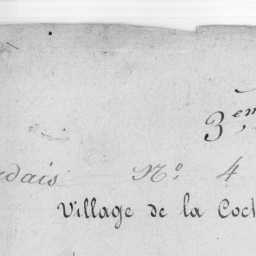 3.em
dais No. 4
Village de la Coc